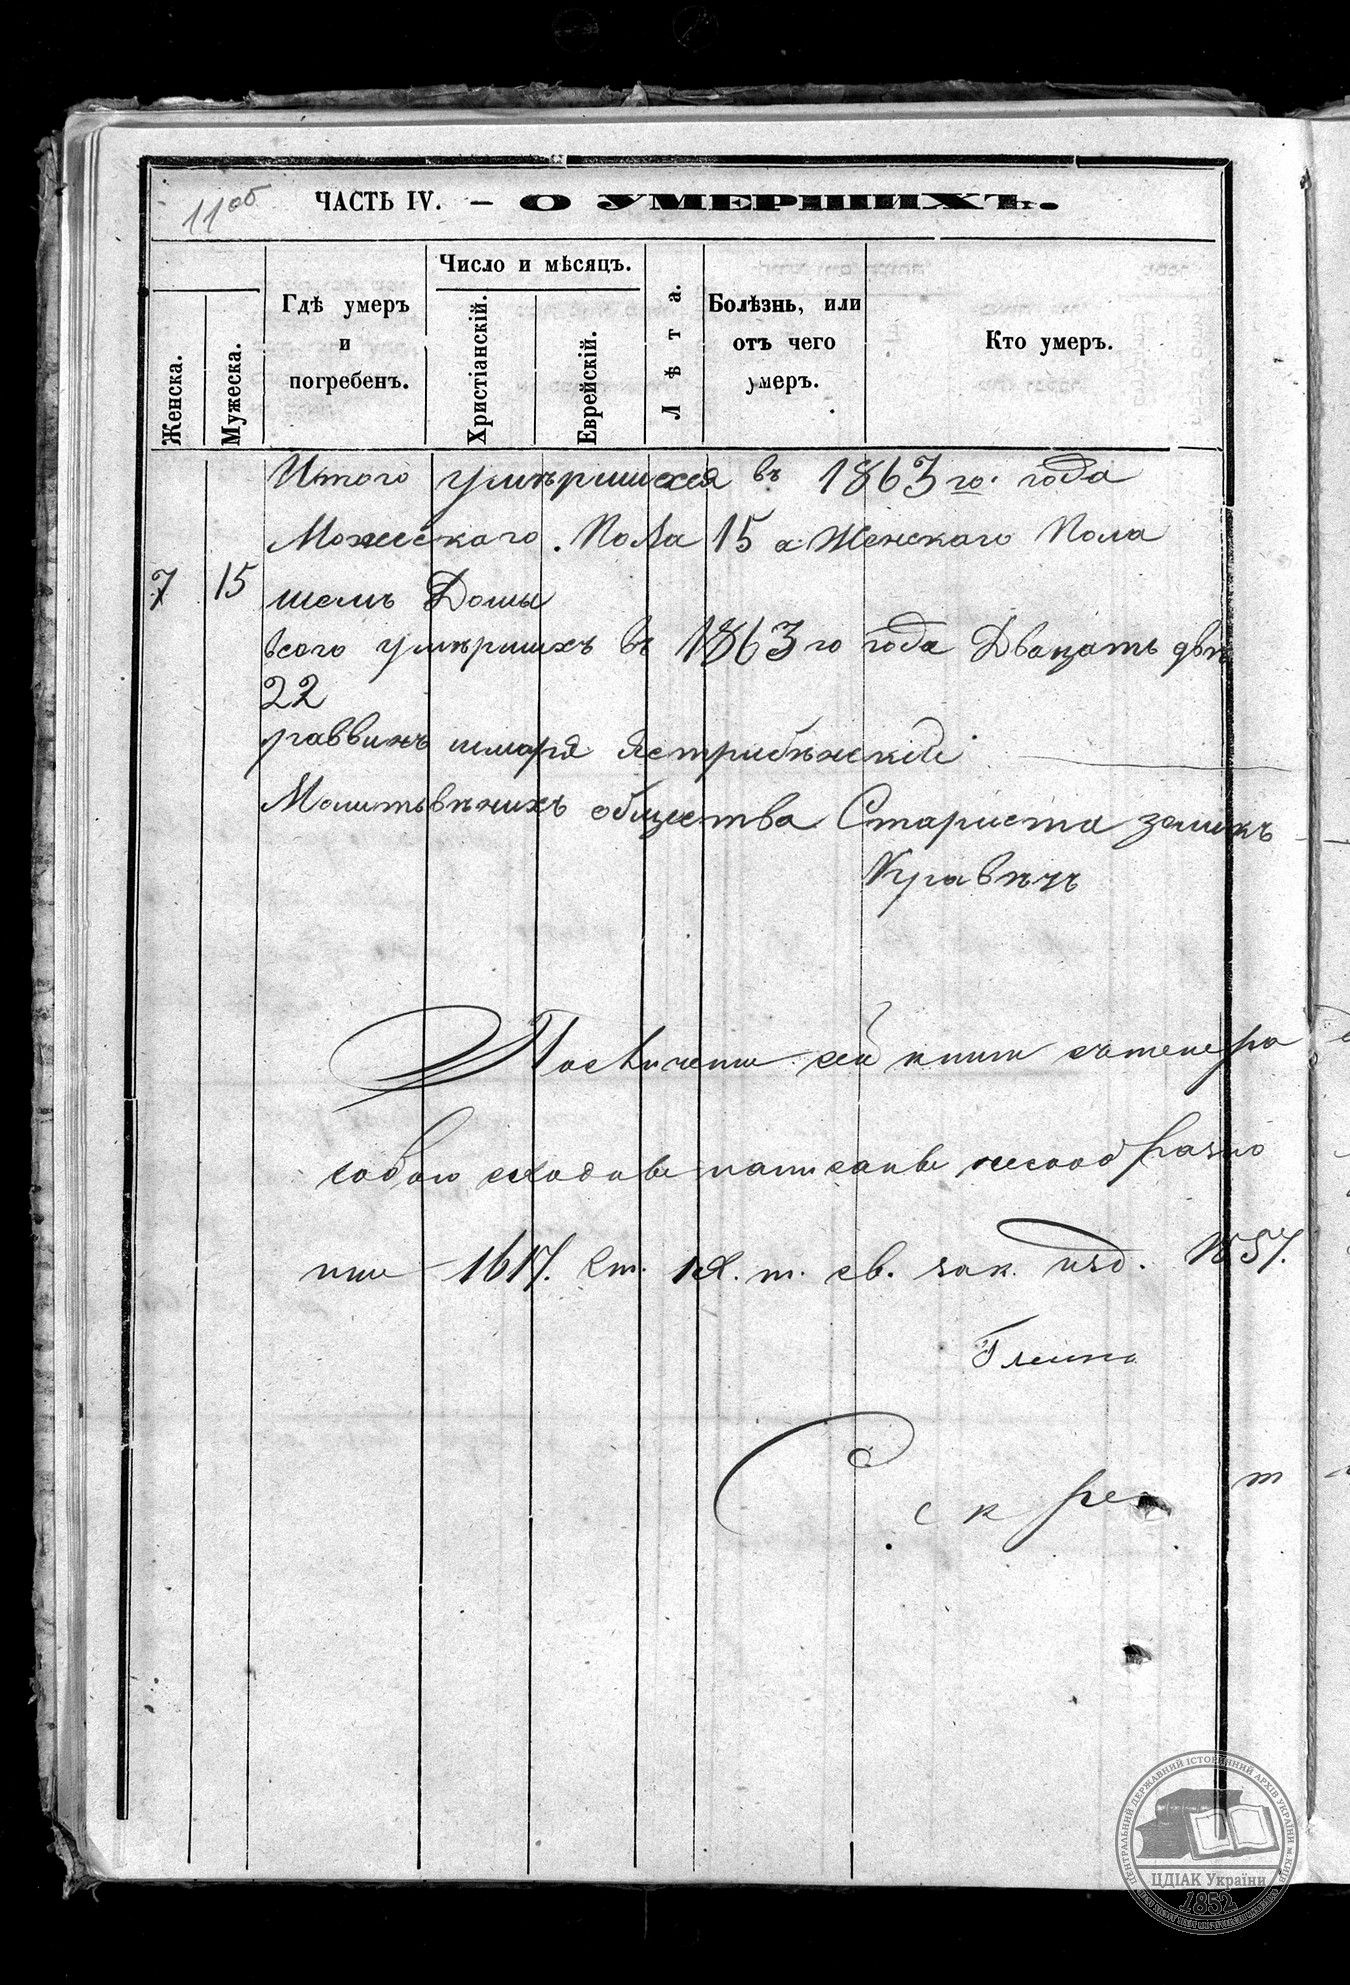 11об
ЧАСТЬ IV. — О УМЕРШИХЪ.
Женска.
Мужеска.
Гдѣ умеръ
и
погребенъ.
Число и мѣсяцъ.
Христіанскій.
Еврейскій.
Лѣта.
Болѣзнь, или
отъ чего
умеръ.
Кто умеръ.
Итого умѣршихся въ 1863 го. года
Можескаго. Пола 15 а Женскаго Пола
7 15
всого умѣршихъ въ 1863 го года Двацать двѣ
22
раввинъ шмаря Ястрибѣнскій
общества Стариста зеликъ
сей книги
собою сходны написаны сообразно
1617. ст. т. св. зак. изд. 1857.
Скре
т
ЦЕНТРАЛЬНИЙ ДЕРЖАВНИЙ ІСТОРИЧНИЙ АРХІВ УКРАЇНИ м.КИЇВ
ЦДІАК України
1852